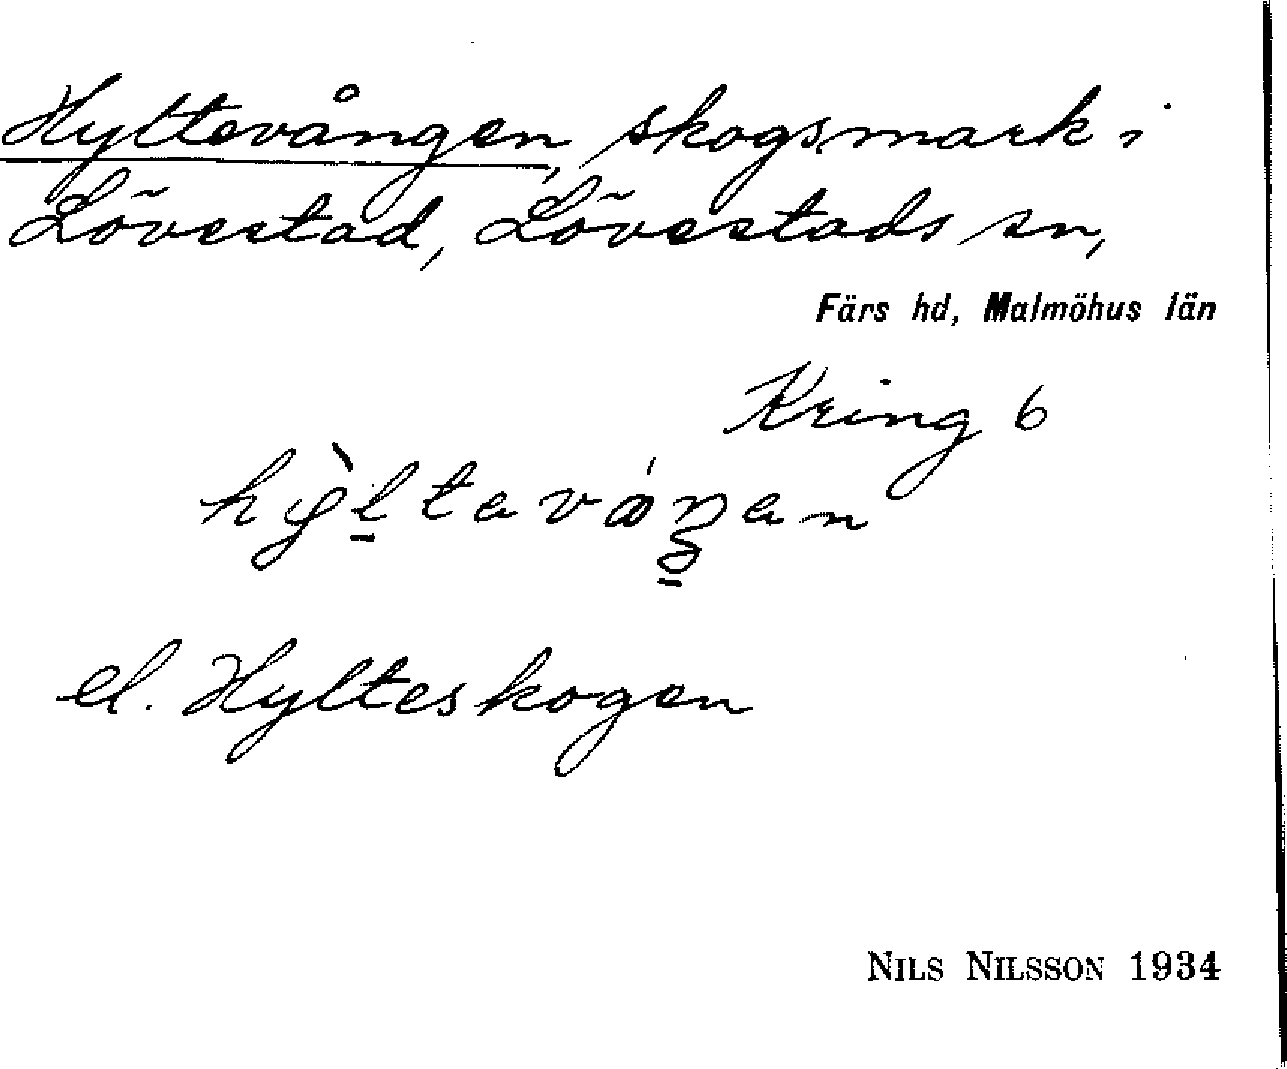 Hyltevången, skogsmark i
Lövestad, Lövestads sn,
Färs hd, Malmöhus län
Kring 6
el. Hylteskogen
NILS NILSSON 1934